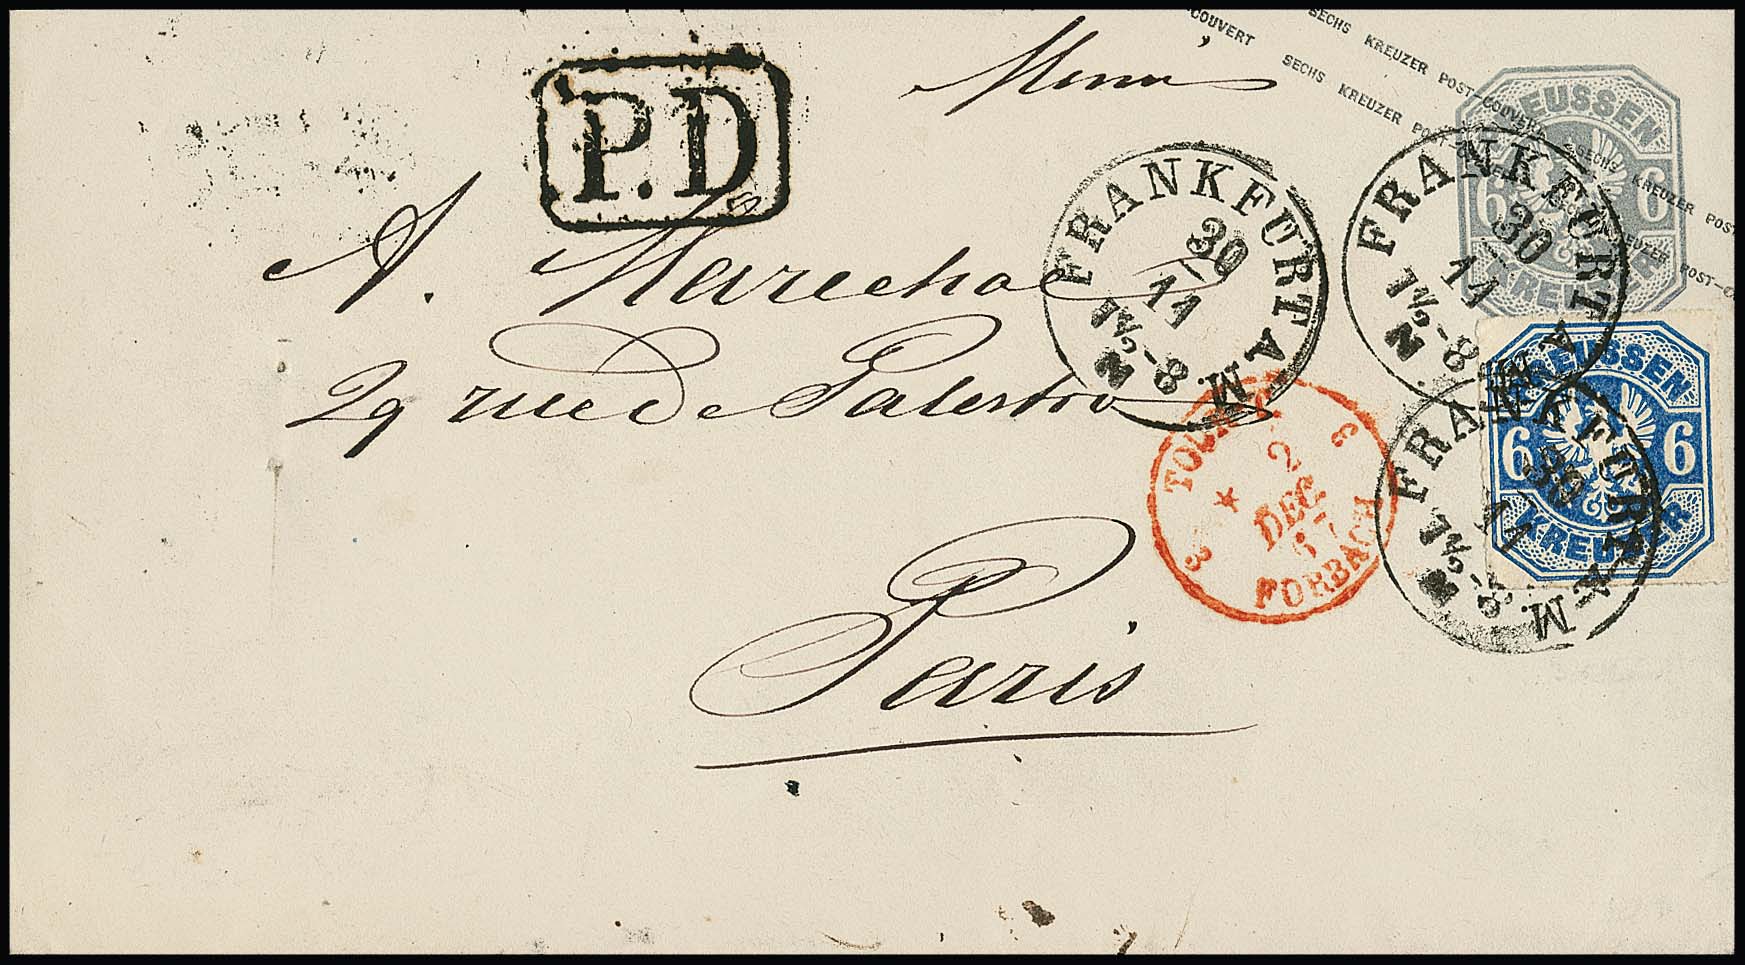 COUVERT SECHS KREUZER POST-COUVERT SECHS KREUZER POST
SECHS KREUZER POST-COUVERT KREUZER POST-
PREUSSEN
6 6
KREUZER
P.D.
A. Marechal
29 rue de Palestro
Paris
FRANKFURT A. M.
30
11
N 2½-8
FRANKFURT A. M.
30
11
N 2½-8
PREUSSEN
6 6
KREUZER
FRANKFURT A. M.
30
11
N 2½-8
3 3
2
DEC
67
FORBACH